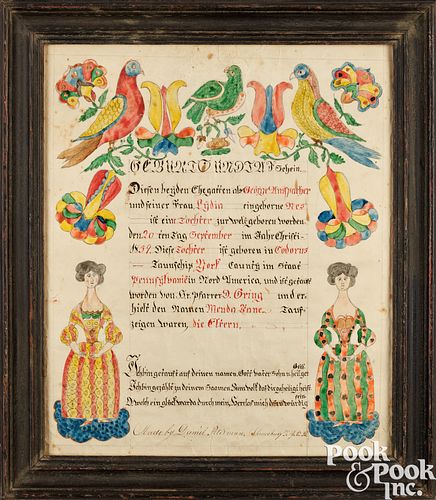 GEBURTS UND TAUF Schein.
Diesen beyden Ehegatten als George Amspacher
und seiner Frau Lydia eingeborne Nes
ist ein Tochter zur welt geboren worden
den 20 ten Tag September im Jahr Christi
Diese Tochter ist geboren in Codorus
Taunschip York County im Staat
Pennsylvanie in Nord America, und ist getauft
worden von Hr. Pfarrer D. Gring und er-
hielt den Namen Menda Jane Tauf-
zeigen waren, die Eltern.
Ich bin getauft auf deinen namen, Gott vater sohn u heilger
Geist
Ich bin gezählt zu deinem Saamen, Zum volk das dir geheiligt heist
O welch ein glück ward durch mein, Herr las mich dein würdig
sein
Made by Daniel Peterman,
Pook
& Pook
Inc.